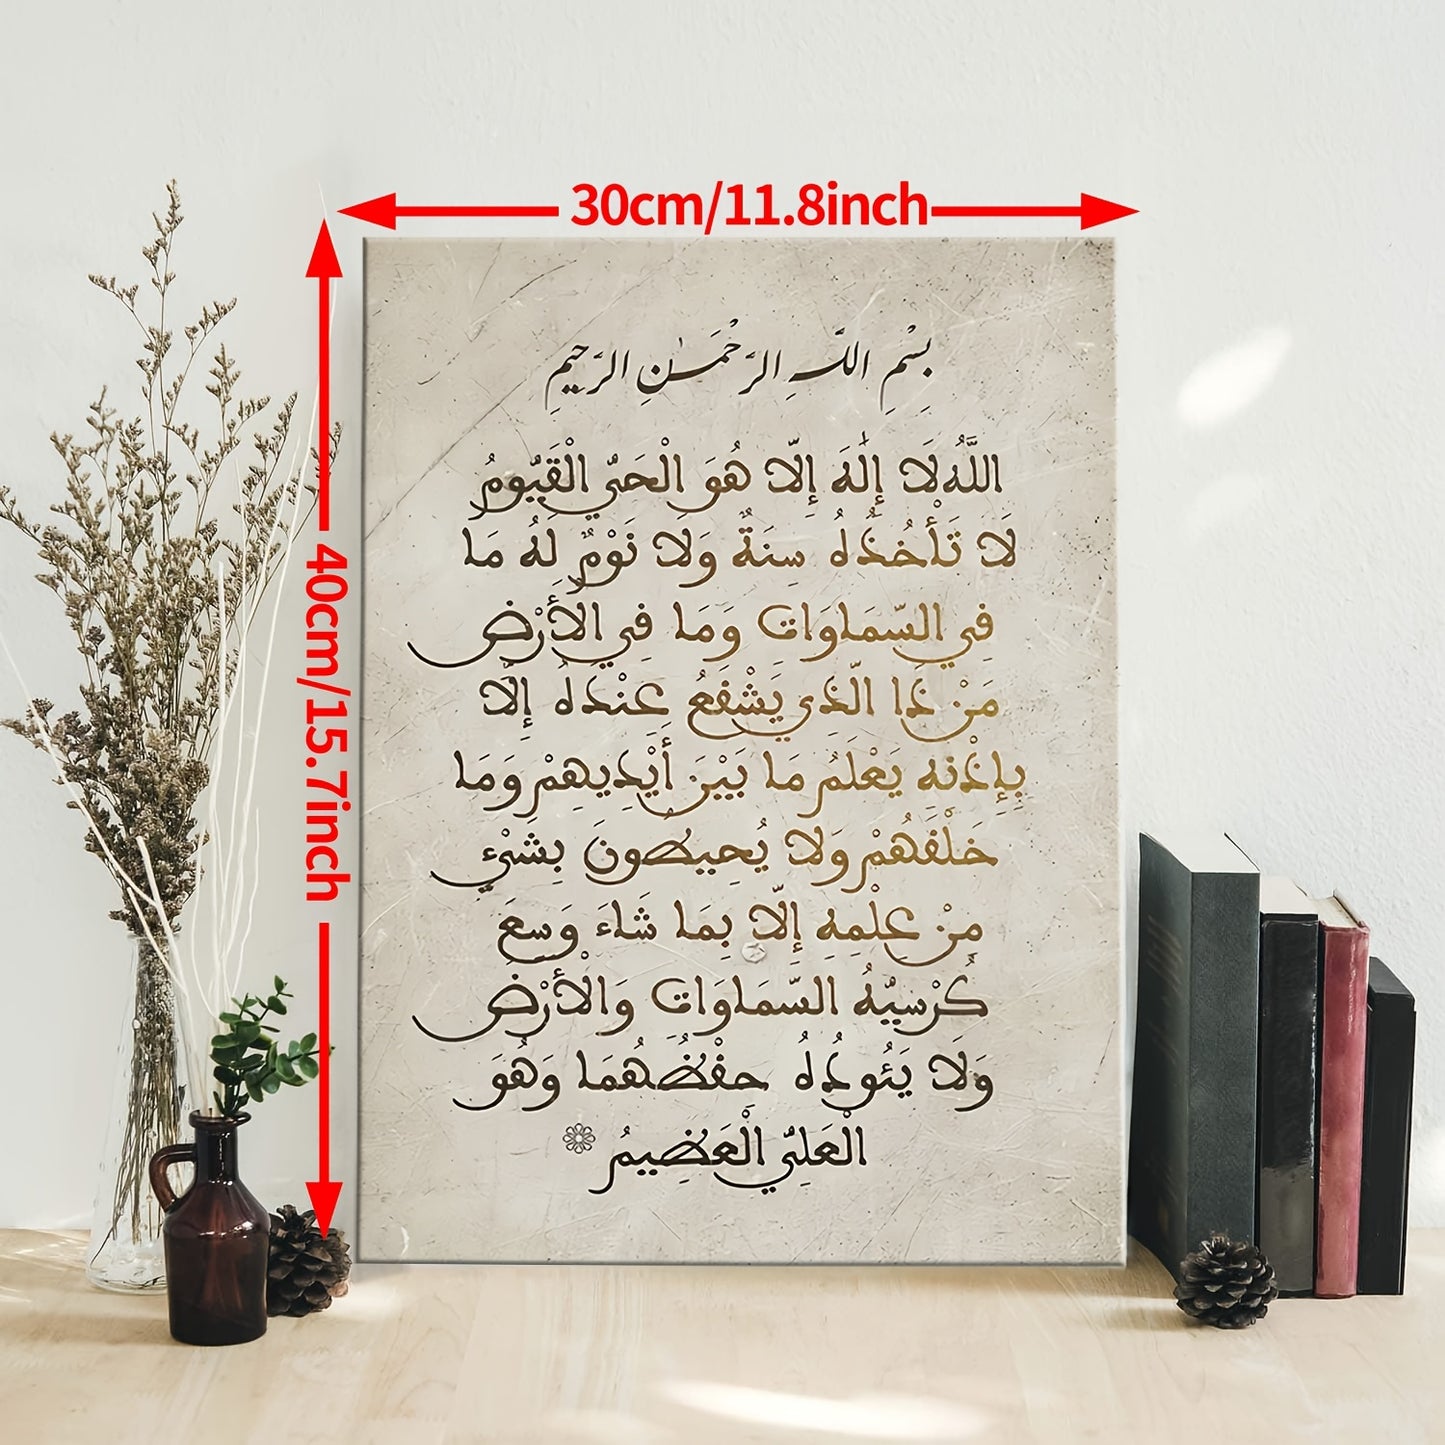 30cm/11.8inch
40cm/15.7inch
بِسْمِ اللهِ الرَّحْمَٰنِ الرَّحِيمِ
اللَّهُ لَا إِلَٰهَ إِلَّا هُوَ الْحَيُّ الْقَيُّومُ
لَا تَأْخُذُهُ سِنَةٌ وَلَا نَوْمٌ لَهُ مَا
فِي السَّمَاوَاتِ وَمَا فِي الْأَرْضِ
مَنْ ذَا الَّذِي يَشْفَعُ عِنْدَهُ إِلَّا
بِإِذْنِهِ يَعْلَمُ مَا بَيْنَ أَيْدِيهِمْ وَمَا
خَلْفَهُمْ وَلَا يُحِيطُونَ بِشَيْءٍ
مِنْ عِلْمِهِ إِلَّا بِمَا شَاءَ وَسِعَ
كُرْسِيُّهُ السَّمَاوَاتِ وَالْأَرْضَ
وَلَا يَئُودُهُ حِفْظُهُمَا وَهُوَ
الْعَلِيُّ الْعَظِيمُ